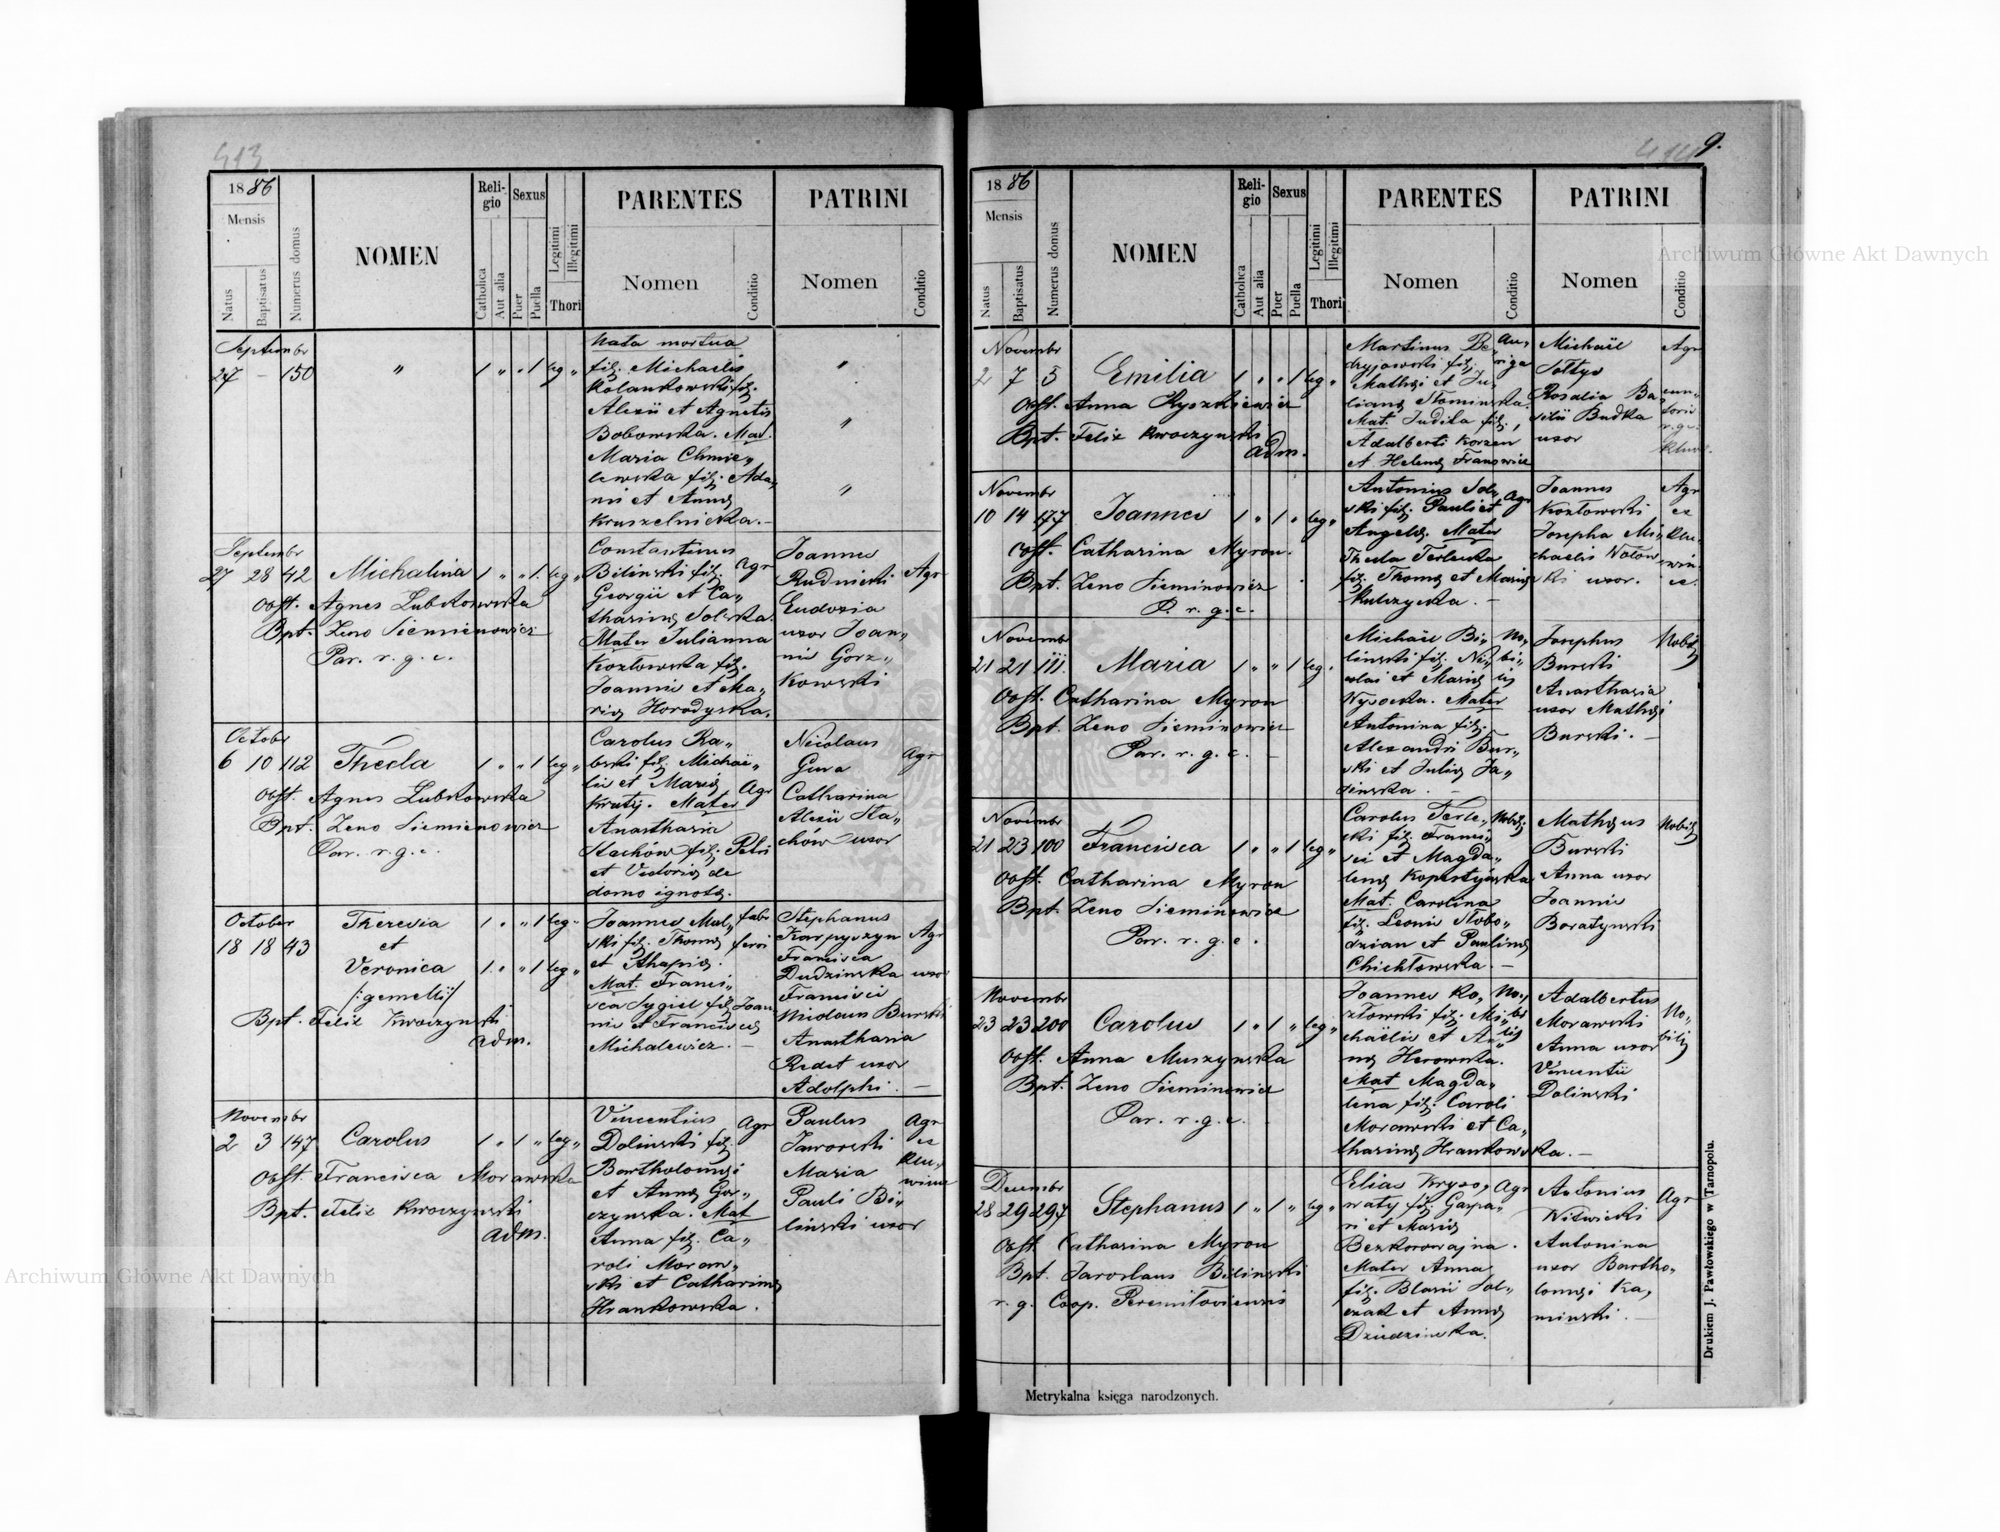 413
1886
Mensis
Natus
Baptisatus
Numerus domus
NOMEN
Religio
Catholica
Aut alia
Sexus
Puer
Puella
Legitimi
Illegitimi
Thori
PARENTES
Nomen
Conditio
PATRINI
Nomen
Conditio
Septembr
27 – 150 „ 1 „ „ 1 leg „
Nata mortua
filj. Michaelis
Kolankowski filj.
Alexii et Agnetis
Bobowska. Mat.
Maria Chmie„
lewska filj. Ada„
mi et Annæ
Kruszelnicka. –
Septembr
27 28 42 Michalina 1 „ „ 1. leg „
Obst. Agnes Lubkowska
Bpt. Zeno Siemienowicz
Par. r. g. c.
Constantinus
Bilinski filj. Agr
Georgii et Ca„
tharinæ Solecka.
Mater Julianna
Kozłowska filj.
Joannis et Ma„
riæ Horodyska.
Joannes
Rudnicki Agr
Eudoxia
uxor Joan„
nis Gorz„
kowski
October
6 10 112 Thecla 1 „ „ 1 leg „
Obst. Agnes Lubkowska
Bpt. Zeno Siemienowicz
Par. r. g. c.
Carolus Ra„
bski filj. Michaë„
lis et Mariæ Agr
Kruty. Mater
Anasthasia
Stachów filj. Petri
et Victoriæ de
domo ignotæ.
Nicolaus
Gura Agr
Catharina
Alexii Sta„
chów uxor
October
18 18 43 Theresia 1 „ „ 1 leg „
et
Veronica 1. „ „ 1 leg „
/:gemelli/
Bpt. Felix Kwoczynski
adm.
Joannes Mal„ fabr
ski filj. Thomæ ferri
et Agapiæ.
Mat. Francis„
sca Sygiel filj. Joan„
nis et Franciscæ
Michalewicz. –
Stephanus
Karpyszyn Agr
Francisca
Dudzinska uxor
Francisci
Nicolaus Burski
Anasthasia
Redet uxor
Adolphi. –
Novembr
2 3 147 Carolus 1 „ 1 „ leg „
Obst. Francisca Morawska
Bpt. Felix Kwoczynski
adm.
Vincentius Agr
Dolinski filj.
Bartholomæi
et Annæ Gor„
czynska. Mat
Anna filj. Ca„
roli Moraw„
ski et Catharinæ
Hrankowska.
Paulus Agr
Jaworski ex
Maria Klu„
Pauli Bi„ wince
linski uxor
9.
1886
Mensis
Natus
Baptisatus
Numerus domus
NOMEN
Religio
Catholica
Aut alia
Sexus
Puer
Puella
Legitimi
Illegitimi
Thori
PARENTES
Nomen
Conditio
PATRINI
Nomen
Conditio
Novembr
2 7 5 Emilia 1 „ „ 1 leg „
Obst. Anna Kyszkiewicz
Bpt. Felix Kwoczynski
adm.
Martinus Be„ Au„
dryjowski filj. riga
Mathæi et Ju„
lianæ Słominska.
Mat. Judita filj.
Adalberti Korzen
et Helenæ Franowicz
Michaël Agr
Sołtys
Rosalia Ba„
silii Budka
uxor
Novembr
10 14 177 Joannes 1 „ 1 „ leg „
Obst. Catharina Myron.
Bpt. Zeno Sieminowicz
P. r. g. c.
Antonius Sol„
ski filj. Pauli et Agr
Angelæ. Mater
Thecla Terlecka
filj. Thomæ et Mariæ
Kulczycka. –
Joannes Agr
Kozłowski ex
Josepha Mi„ Klu„
chaelis Wołow„ win„
ski uxor. ce.
Novembr
21 21 111. Maria 1 „ „ 1 leg.
Obst. Catharina Myron
Bpt. Zeno Sieminowicz
Par. r. g. c. –
Michaël Bi„ No„
linski filj. Ni„ bi„
colai et Mariæ lis
Wysocka. Mater
Antonina filj.
Alexandri Bur„
ski et Juliæ Ja„
sinska. –
Josephus Nobilis
Burski
Anasthasia
uxor Mathæi
Burski. –
Novembr
21 23 100 Francisca 1 „ „ 1 leg „
Obst. Catharina Myron
Bpt. Zeno Sieminowicz
Par. r. g. c.
Carolus Terle„ Nobilis
cki filj. Franci„
sci et Magda„
lenæ Kopestyńska
Mat. Carolina
filj. Leonis Słobo„
dzian et Paulinæ
Chichłowska. –
Mathæus Nobilis
Burski
Anna uxor
Joannis
Boratynski
Novembr
23 23 200 Carolus 1 „ 1 „ leg „
Obst. Anna Muszynska
Bpt. Zeno Sieminowicz
Par. r. g. c.
Joannes Ko„ No„
złowski filj. Mi„ bi
chaëlis et An„ lis
næ Herowska.
Mat Magda„
lena filj. Caroli
Morawski et Ca„
tharinæ Hrankowska. –
Adalbertus No„
Morawski bilis
Anna uxor
Vincentii
Dolinski
Decembr
28 29 297 Stephanus 1 „ 1 „ leg „
Obst. Catharina Myron
Bpt. Jaroslaus Bilinski
r. g. Coop. Peremiloviensis
Elias Kryso„ Agr
waty filj. Gaspa„
ri et Mariæ
Bezkorowajna.
Mater Anna
filj. Blasii Sol„
czak et Annæ
Dziedzinska.
Antonius Agr
Witwicki
Antonina
uxor Bartho„
lomæi Ka„
minski. –
Metrykalna księga narodzonych.
Drukiem J. Pawłowskiego w Tarnopolu.
Archiwum Główne Akt Dawnych
Archiwum Główne Akt Dawnych